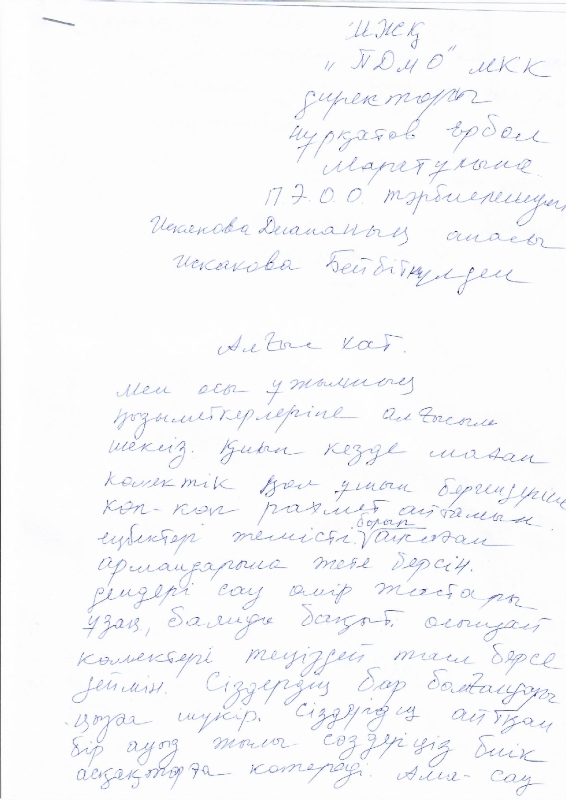 ШЖҚ
"ПДМО" МКК
директоры
Нурқатов Ербол
Маратулына.
П.Э.О.О. тәрбиеленушісі
Искакова Диананың анасы
Искакова Бейбітгулден
Алғыс хат.
Мен осы ұжымның
қызыметкерлеріне алғысым
шексіз. Қиын кезде маған
көмектік қол ұшын
көп-көп рахмет айтамын.
еңбектері жемісті болып алған
армандарына жете берсін.
дендері сау өмір жастары
ұзақ, баянды бақыт. осындай
көмектері теңіздей тасы берсе
деймін. Сіздердің бар болғандары
ңызға шүкір. Сіздердің айтқан
бір ауыз жылы сөздеріңіз биік
көтереді. Аман-сау